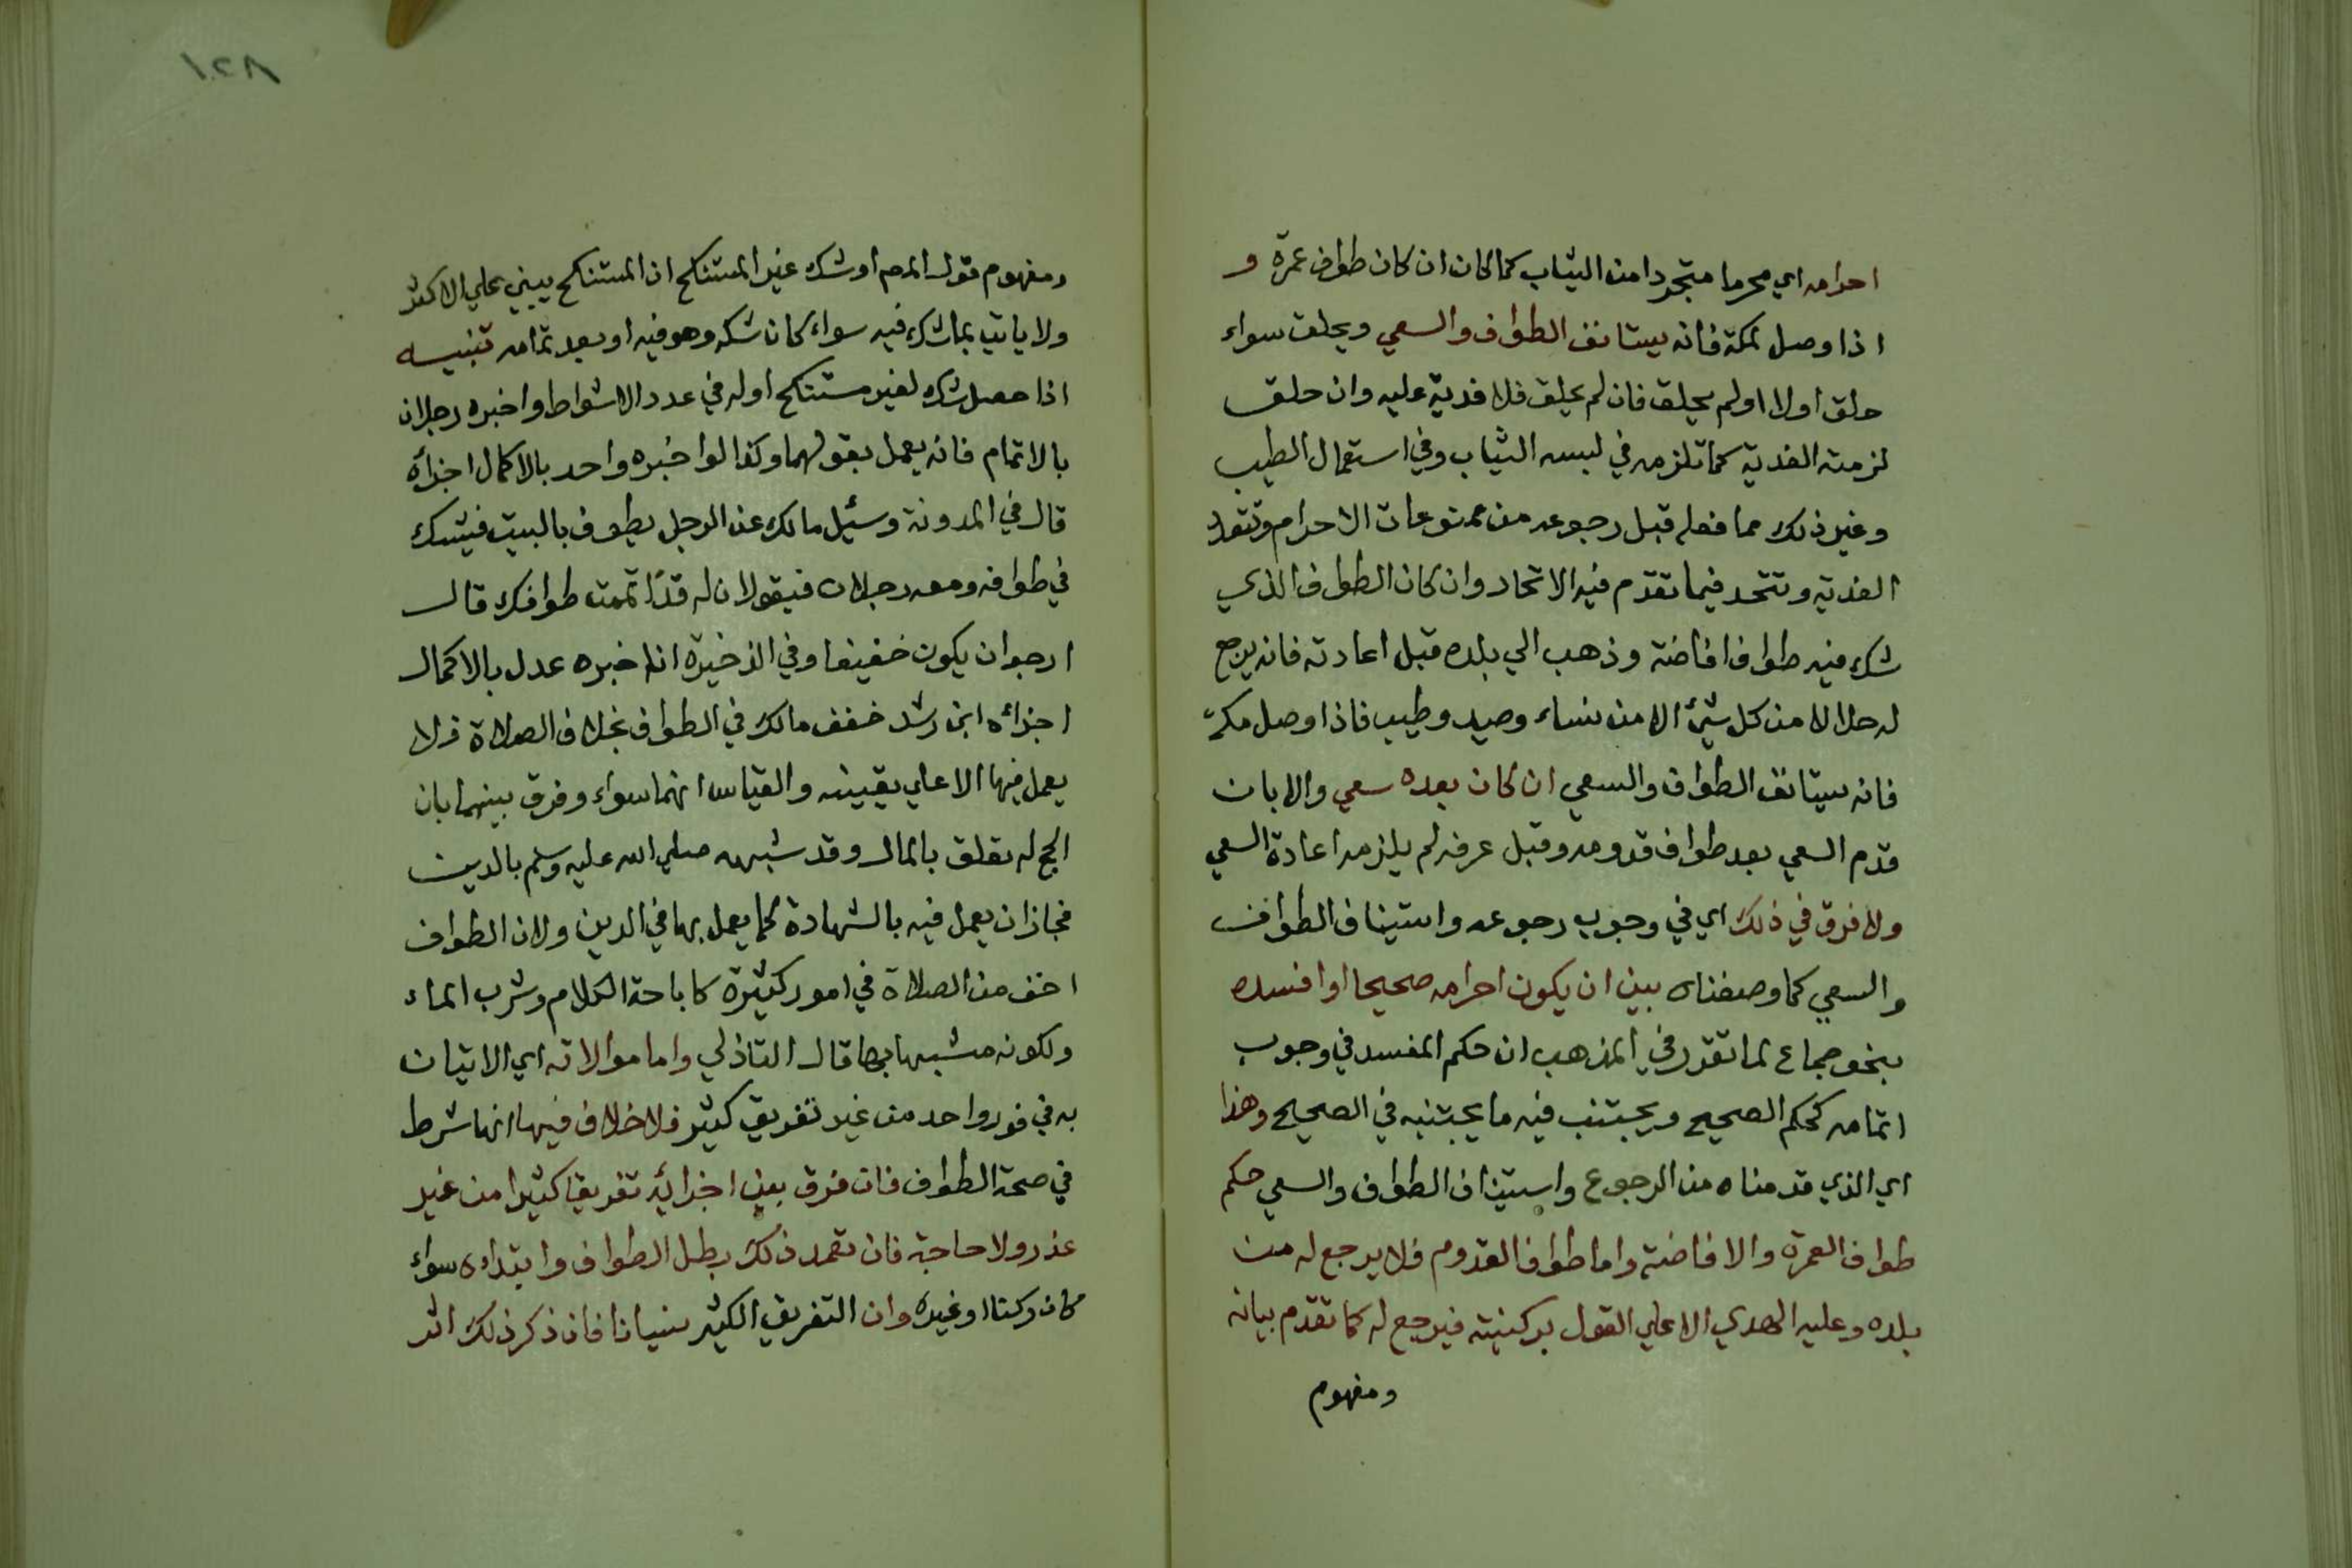 احرامه اي محرما متجردا من الثياب كما كان ان كان طواف عمرة و
اذا وصل لمكة فانه يستانف الطواف والسعي ويحلق سواء
حلق اولا او لم يحلق فان لم يحلق فلا فدية عليه وان حلق
لزمته الفدية كما تلزمه في لبسه الثياب وفي استعمال الطيب
وغير ذلك مما فعله قبل رجوعه من ممنوعات الاحرام وتتعدد
الفدية وتتحد فيما تقدم فيه الاتحاد وان كان الطواف الذي
شك فيه طواف افاضة وذهب الي بلده قبل اعادته فانه يرجع
له حلالا من كل شيئ الا من نساء وصيد وطيب فاذا وصل مكة
فانه سيتانف الطواف والسعي ان كان بعده سعي والا بان
قدم السعي بعد طواف قدومه وقبل عرفه لم يلزمه اعادة السعي
ولا فرق في ذلك اي في وجوب رجوعه واستيناف الطواف
والسعي كما وصفناه بين ان يكون احرامه صحيحا او افسده
بنحو جماع لما تقرر في المذهب ان حكم المفسد في وجوب
اتمامه كحكم الصحيح ويجتنب فيه ما يجتنبه في الصحيح وهذا
اي الذي قدمناه من الرجوع واستيناف الطواف والسعي حكم
طواف العمرة والافاضة واما طواف القدوم فلا يرجع له من
بلده وعليه الهدي الا علي القول بركنيته فيرجع له كما تقدم بيانه
ومفهوم
١٢٨
ومفهوم قول المص او شك غير المستنكح ان المستنكح يبني علي الاكثر
ولا ياتي بما شك فيه سواء كان شكه وهو فيه او بعد تمامه تنبيه
اذا حصل شك لغير مستنكح اوله في عدد الاشواط واخبره رجلان
بالاتمام فانه يعمل بقولهما وكذا لو اخبره واحد بالاكمال اجزاه
قال في المدونة وسئيل مالك عن الرجل يطوف بالبيت فيشك
في طوافه ومعه رجلان فيقولان له قد اتممت طوافك قال
ارجو ان يكون خفيفا وفي الذخيرة ان اخبره عدل بالاكمال
اجزائه ابن رشد خفف مالك في الطواف بخلاف الصلاة فلا
يعمل فيها الا علي يقينه والقياس انهما سواء وفرق بينهما بان
الحج له تعلق بالمال وقد شبهه صلي الله عليه وسلم بالدين
فجاز ان يعمل فيه بالشهادة كما يعمل بها في الدين ولان الطواف
اخف من الصلاة في امور كثيرة كاباحة الكلام وشرب الماء
ولكونه مشبها بها قال التاذلي واما موالاته اي الاتيان
به في فور واحد من غير تفريق كثير فلا خلاف فيها انها شرط
في صحة الطواف فان فرق بين اجزائه تفريقا كثيرا من غير
عذر ولا حاجة فان تعمد ذلك بطل الطواف وابتداه سواء
كان ركنا او غيره وان التفريق الكثير نسيانا فان ذكر ذلك اثر